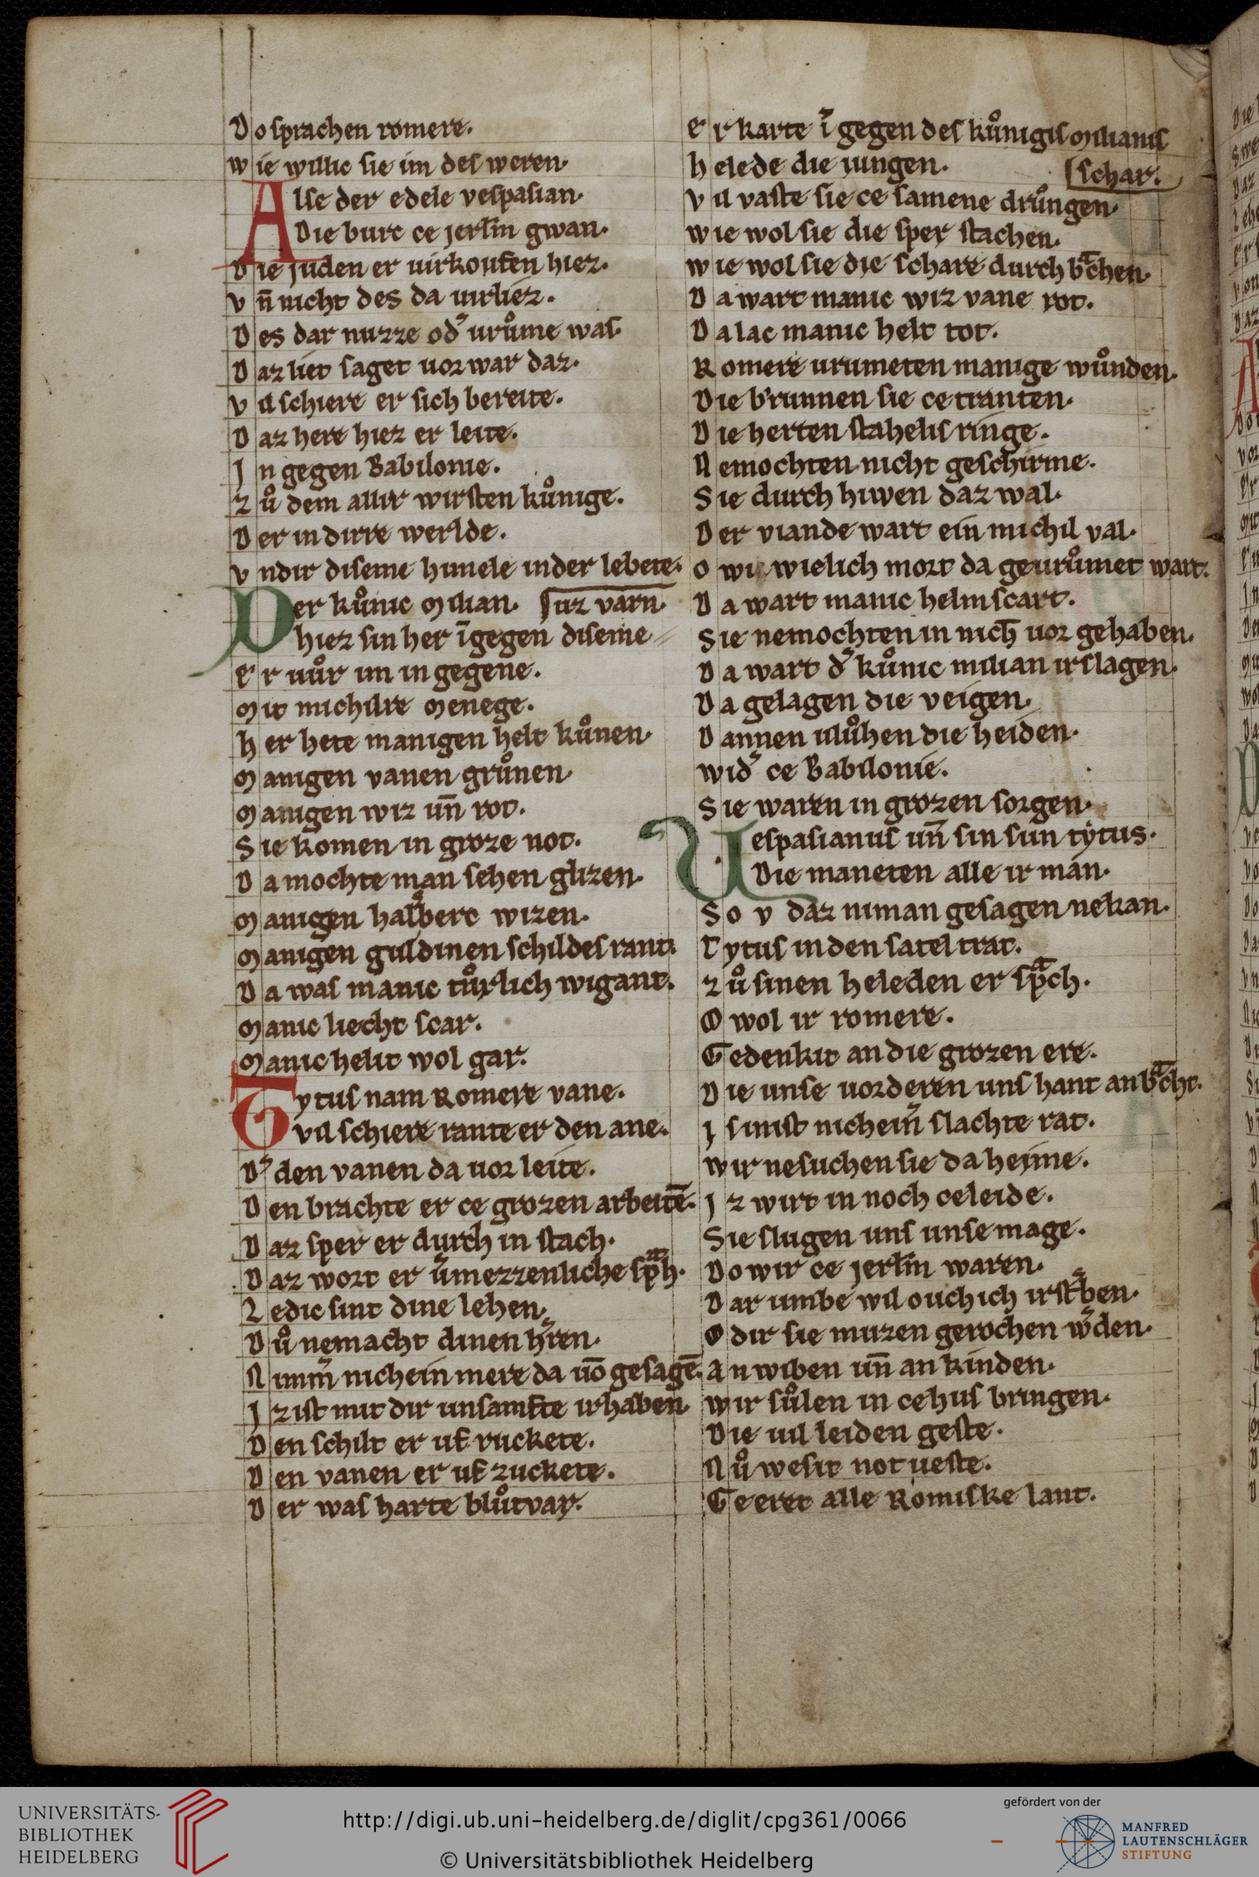 Do sprachen romere.
wie willic sie im des weren.
Alse der edele vespasian.
Die burc ce jerl̄m gwan.
Die juden er uirkoufen hiez.
vn̄ nicht des da uirliez.
Des dar nuzze od͛ urůme was.
Daz liet saget uor war daz.
vil schiere er sich bereite.
Daz here hiez er leite.
In gegen Babilonie.
Zů dem allir wirsten kůnige.
Der in dirre werlde.
vndir diseme himele inder lebete.
Der kůnic milian. ſur varn.
hiez sin her ī gegen diseme
er vůr im in gegene.
mit michilre menege.
her hete manigen helt kůnen.
manigen vanen grůnen.
manigen wiz un̄ rot.
Sie komen in groze not.
Da mochte man sehen glizen.
manigen halsberc wizen.
manigen guldinen schildes rant.
Da was manic tůrlich wigant.
manic liecht scar.
manic helit wol gar.
Tytus nam Romere vane.
vil schiere rante er den ane.
D͛ den vanen da uor leite.
Den brachte er ce grozen arbeitē.
Daz sper er durch in stach.
Daz wort er v͛mezzenliche spͣch.
Ledic sint dine lehen.
Dů nemacht dinen h͛ren.
Nimm͛ nichein mere da uō gesagē.
Iz ist mit dir unsamfte irhaben.
Den schilt er uf ruckete.
Den vanen er uf zuckete.
Der was harte blůtvar.
er karte ī gegen des kůnigis milianis
helede die jungen. ſschar.
vil vaste sie ce samene drůngen.
wie wol sie die sper stachen.
wie wol sie die schare durch bͣchen.
Da wart manic wiz vane rot.
Da lac manic helt tot.
Romere urumeten manige wůnden.
Die brunnen sie ce tranten.
Die herten stahelis ringe.
Nemochten nicht geschirme.
Sie durch hiwen daz wal.
Der viande wart ein michil val.
owi wielich mort da geurůmet wart.
Da wart manic helm scart.
Sie nemochten in nich̄ uor gehaben.
Da wart d͛ kůnic milian irslagen.
Da gelagen die veigen.
Dannen ulůhen die heiden.
wid͛ ce Babilonie.
Sie waren in grozen sorgen.
Uespasianus un̄ sin sun tytus.
Die maneten alle ir man.
So v daz niman gesagen nekan.
Tytus in den satel trat.
Zů sinen heleden er spͣch.
O wol ir romere.
Gedenkit an die grozen ere.
Die unse uorderen uns hant an bͣcht.
Is nist nichein͛ slachte rat.
wir nesuchen sie da heime.
Iz wirt in noch ce leide.
Sie slugen uns unse mage.
Do wir ce jerl̄m waren.
Dar umbe wil ouch ich irst͛ben.
Odir sie muzen gerochen w͛den.
an wiben un̄ an kinden.
wir sůlen in ce hus bringen.
Die uil leiden geste.
Nů wesit not ueste.
Ge eret alle Romiske lant.
UNIVERSITÄTS-
BIBLIOTHEK
HEIDELBERG
http://digi.ub.uni-heidelberg.de/diglit/cpg361/0066
© Universitätsbibliothek Heidelberg
gefördert von der
MANFRED
LAUTENSCHLÄGER
STIFTUNG